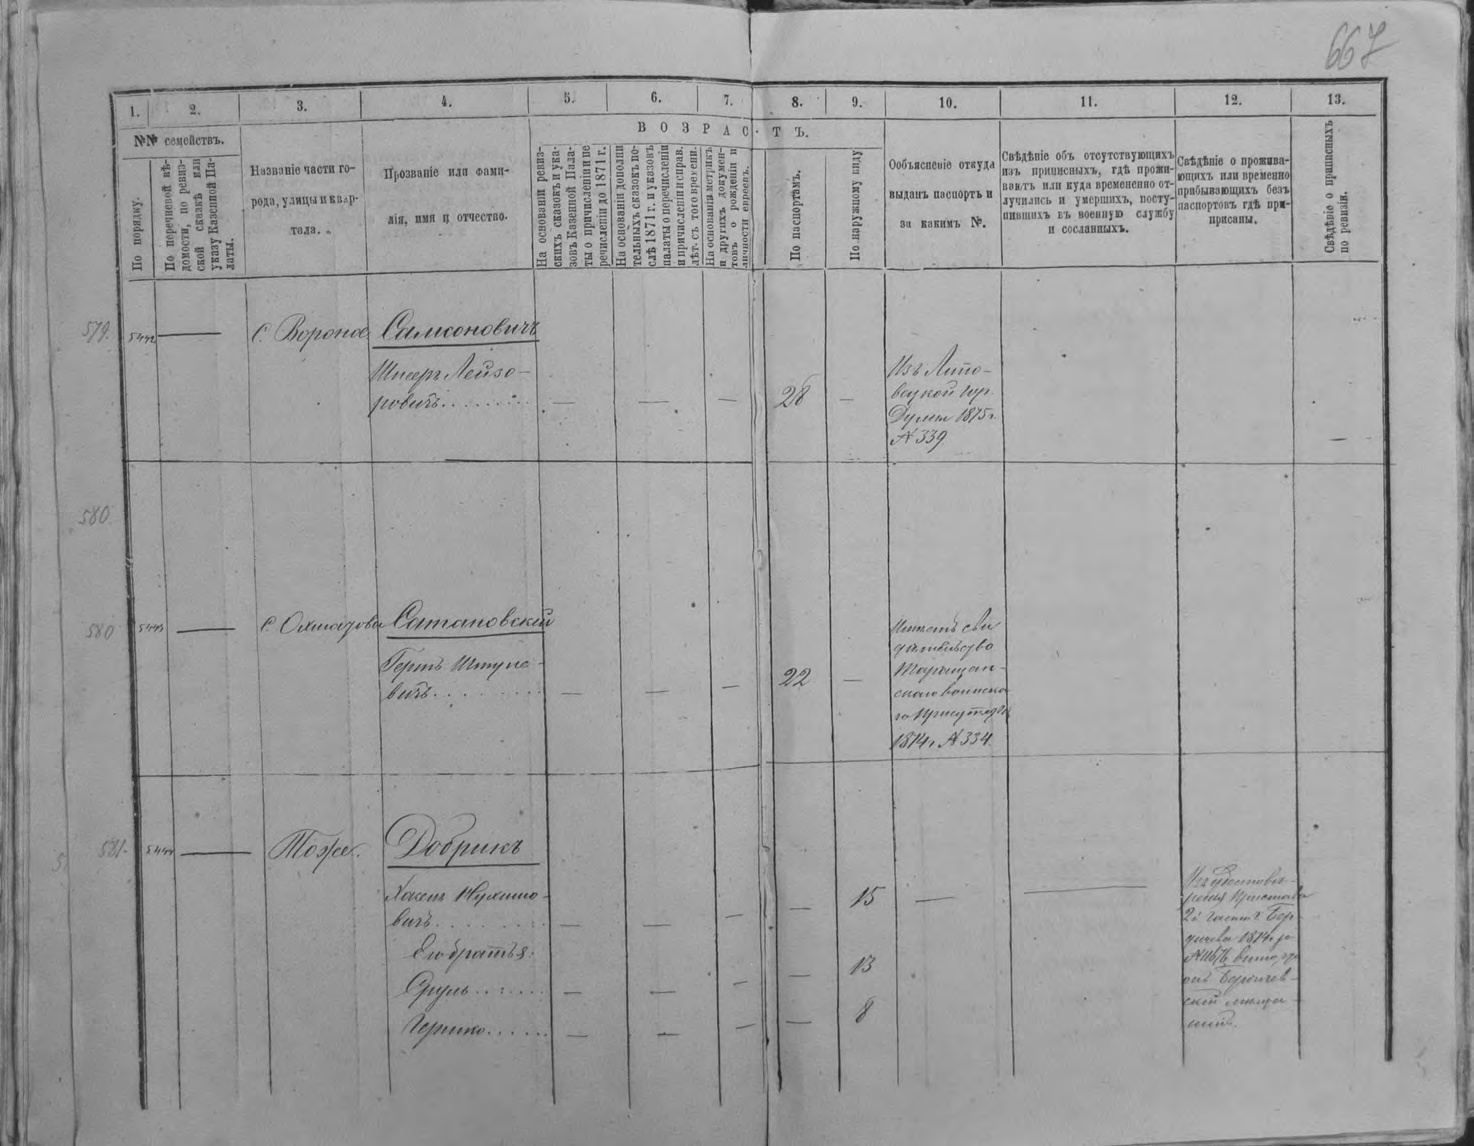 667
1.
2.
3.
4.
5.
6.
7.
8.
9.
10.
11.
12.
13.
№№ семействъ.
ВОЗРАСТЪ.
По порядку.
По перечневой вѣ-
домости, по ревиз-
ской сказкѣ или
указу Казенной Па-
латы.
Названіе части го-
рода, улицы и квар-
тала.
Прозваніе или фами-
лія, имя и отчество.
На основаніи ревиз-
скихъ сказокъ и ука-
зовъ Казенной Пала-
ты о причисленіи и пе
речисленіи до 1871 г.
На основаніи дополни
тельныхъ сказокъ по-
слѣ 1871 г. и указовъ
палаты о перечисленіи
и причисленіи и справ.
лѣт. съ того времени.
На основаніи метрикъ
и другихъ докумен-
товъ о рожденіи и
личности евреевъ.
По паспортамъ.
По наружному виду
Объясненіе откуда
выданъ паспортъ и
за какимъ №.
Свѣдѣніе объ отсутствующихъ
изъ приписныхъ, гдѣ прожи-
ваютъ или куда временно от-
лучились и умершихъ, посту-
пившихъ въ военную службу
и сосланныхъ.
Свѣдѣніе о прожива-
ющихъ или временно
прибывающихъ безъ
паспортовъ гдѣ при-
писаны.
Свѣдѣніе о приписныхъ
по ревизіи.
579.
5442
С. Вороное
Самсоновичъ
Шмеръ Лейзо-
ровичъ
28
Изъ Липо-
вецкой гор.
Думы 1875 г.
№ 339
580
580
5443
С. Охматова
Сатановскій
Герть
вичъ
22
Имѣетъ сви
дѣтельство
Таращан-
скаго воинска
го Присутствія
1874 г. № 334
581.
5444
Тоже.
Добрикъ
вичъ
15
Его братья:
Сруль
13
Гершко
8
Изъ
Пристава
2й части г. Бер-
дичева 1874 г. за
что
онъ Бердичев-
скій мѣща-
нинъ.